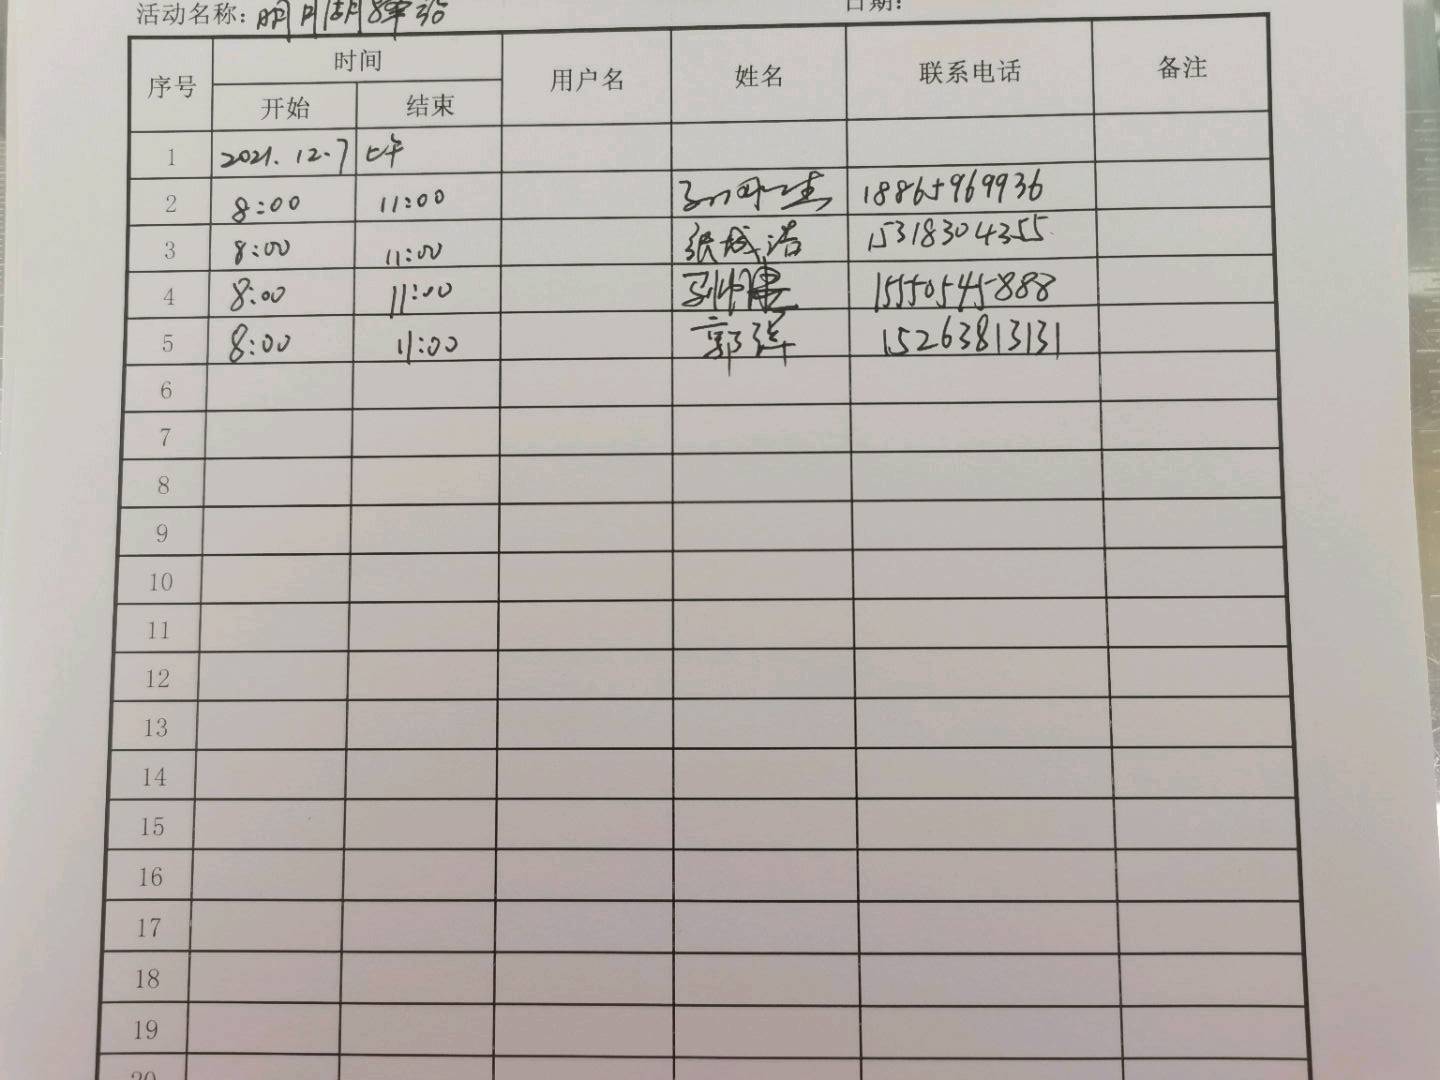 活动名称：明月湖
日期：
序号 时间 用户名 姓名 联系电话 备注
开始 结束
1 2021.12.7 上午
2 8:00 11:00 18865969936
3 8:00 11:00 张成浩 15318304355
4 8:00 11:00 15550545888
5 8:00 11:00 郭祥 15263813131
6
7
8
9
10
11
12
13
14
15
16
17
18
19
20